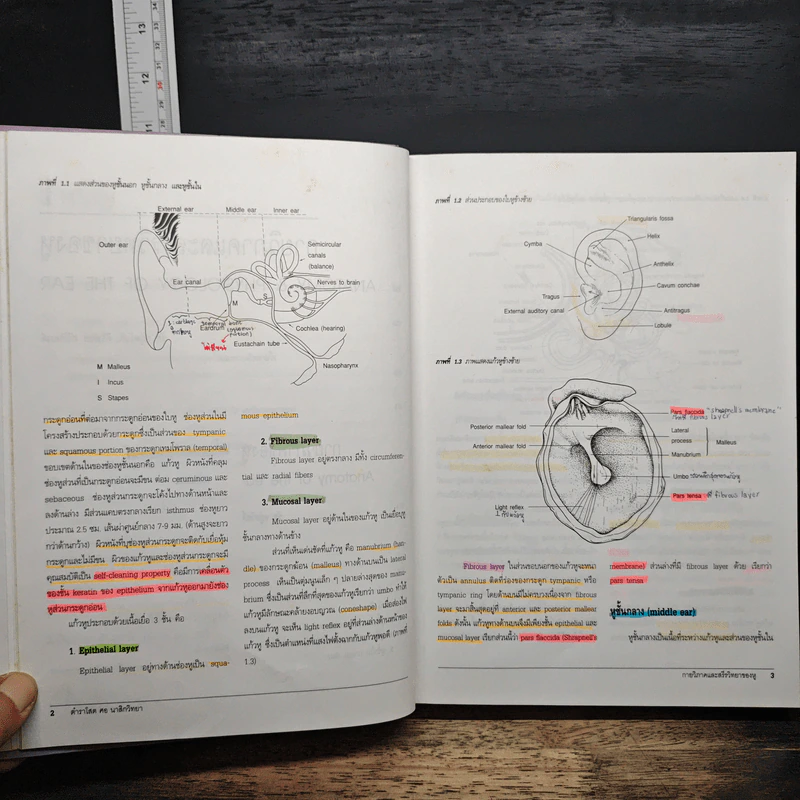 ภาพที่ 1.1 แสดงส่วนของหูชั้นนอก หูชั้นกลาง และหูชั้นใน
External ear
Middle ear
Inner ear
Outer ear
Semicircular
canals
(balance)
Ear canal
Nerves to brain
M
I
S
Eardrum
Cochlea (hearing)
Eustachain tube
Nasopharynx
M Malleus
I Incus
S Stapes
กระดูกอ่อนที่ต่อมาจากกระดูกอ่อนของใบหู ช่องหูส่วนในมี
โครงสร้างประกอบด้วยกระดูกซึ่งเป็นส่วนของ tympanic
และ squamous portion ของกระดูกเทมโพราล (temporal)
ขอบเขตด้านในของช่องหูชั้นนอกคือ แก้วหู ผิวหนังที่คลุม
ช่องหูส่วนที่เป็นกระดูกอ่อนจะมีขน ต่อม ceruminous และ
sebaceous ช่องหูส่วนกระดูกจะโค้งไปทางด้านหน้าและ
ลงด้านล่าง มีส่วนแคบตรงกลางเรียก isthmus ช่องหูยาว
ประมาณ 2.5 ซม. เส้นผ่าศูนย์กลาง 7-9 มม. (ด้านสูงจะยาว
กว่าด้านกว้าง) ผิวหนังที่บุช่องหูส่วนกระดูกจะติดกับเยื่อหุ้ม
กระดูกและไม่มีขน ผิวของแก้วหูและช่องหูส่วนกระดูกจะมี
คุณสมบัติเป็น self-cleaning property คือมีการเคลื่อนตัว
ของชั้น keratin ของ epithelium จากแก้วหูออกมายังช่อง
หูส่วนกระดูกอ่อน
แก้วหูประกอบด้วยเนื้อเยื่อ 3 ชั้น คือ
1. Epithelial layer
Epithelial layer อยู่ทางด้านช่องหูเป็น squa-
mous epithelium
2. Fibrous layer
Fibrous layer อยู่ตรงกลาง มีทั้ง circumferen-
tial และ radial fibers
3. Mucosal layer
Mucosal layer อยู่ด้านในของแก้วหู เป็นเยื่อบุหู
ชั้นกลางทางด้านข้าง
ส่วนที่เห็นเด่นชัดที่แก้วหู คือ manubrium (han-
dle) ของกระดูกฆ้อน (malleus) ทางด้านบนเป็น lateral
process เห็นเป็นตุ่มนูนเล็ก ๆ ปลายล่างสุดของ manu-
brium ซึ่งเป็นส่วนที่ลึกที่สุดของแก้วหูเรียกว่า umbo ทำให้
แก้วหูมีลักษณะคล้ายงอบญวน (coneshape) เมื่อส่องไฟ
ลงบนแก้วหู จะเห็น light reflex อยู่ที่ส่วนล่างด้านหน้าของ
แก้วหู ซึ่งเป็นตำแหน่งที่แสงไฟตั้งฉากกับแก้วหูพอดี (ภาพที่
1.3)
2 ตำราโสต ศอ นาสิกวิทยา
ภาพที่ 1.2 ส่วนประกอบของใบหูข้างซ้าย
Triangularis fossa
Helix
Cymba
Anthelix
Cavum conchae
Tragus
Antitragus
External auditory canal
Lobule
ภาพที่ 1.3 ภาพแสดงแก้วหูข้างซ้าย
Pars flaccida "shrapnell's membrane"
fibrous layer
Posterior mallear fold
Lateral
process
Malleus
Anterior mallear fold
Manubrium
Umbo
Pars tensa มี fibrous layer
Light reflex
Fibrous layer ในส่วนขอบนอกของแก้วหูจะหนา
ตัวเป็น annulus ติดที่ร่องของกระดูก tympanic หรือ
tympanic ring โดยด้านบนมีไม่ครบวงเนื่องจาก fibrous
layer จะมาสิ้นสุดอยู่ที่ anterior และ posterior mallear
folds ดังนั้น แก้วหูทางด้านบนจึงมีเพียงชั้น epithelial และ
mucosal layer เรียกส่วนนี้ว่า pars flaccida (Shrapnell's
membrane) ส่วนล่างที่มี fibrous layer ด้วย เรียกว่า
pars tensa
หูชั้นกลาง (middle ear)
หูชั้นกลางเป็นเนื้อที่ระหว่างแก้วหูและส่วนของหูชั้นใน
กายวิภาคและสรีรวิทยาของหู 3